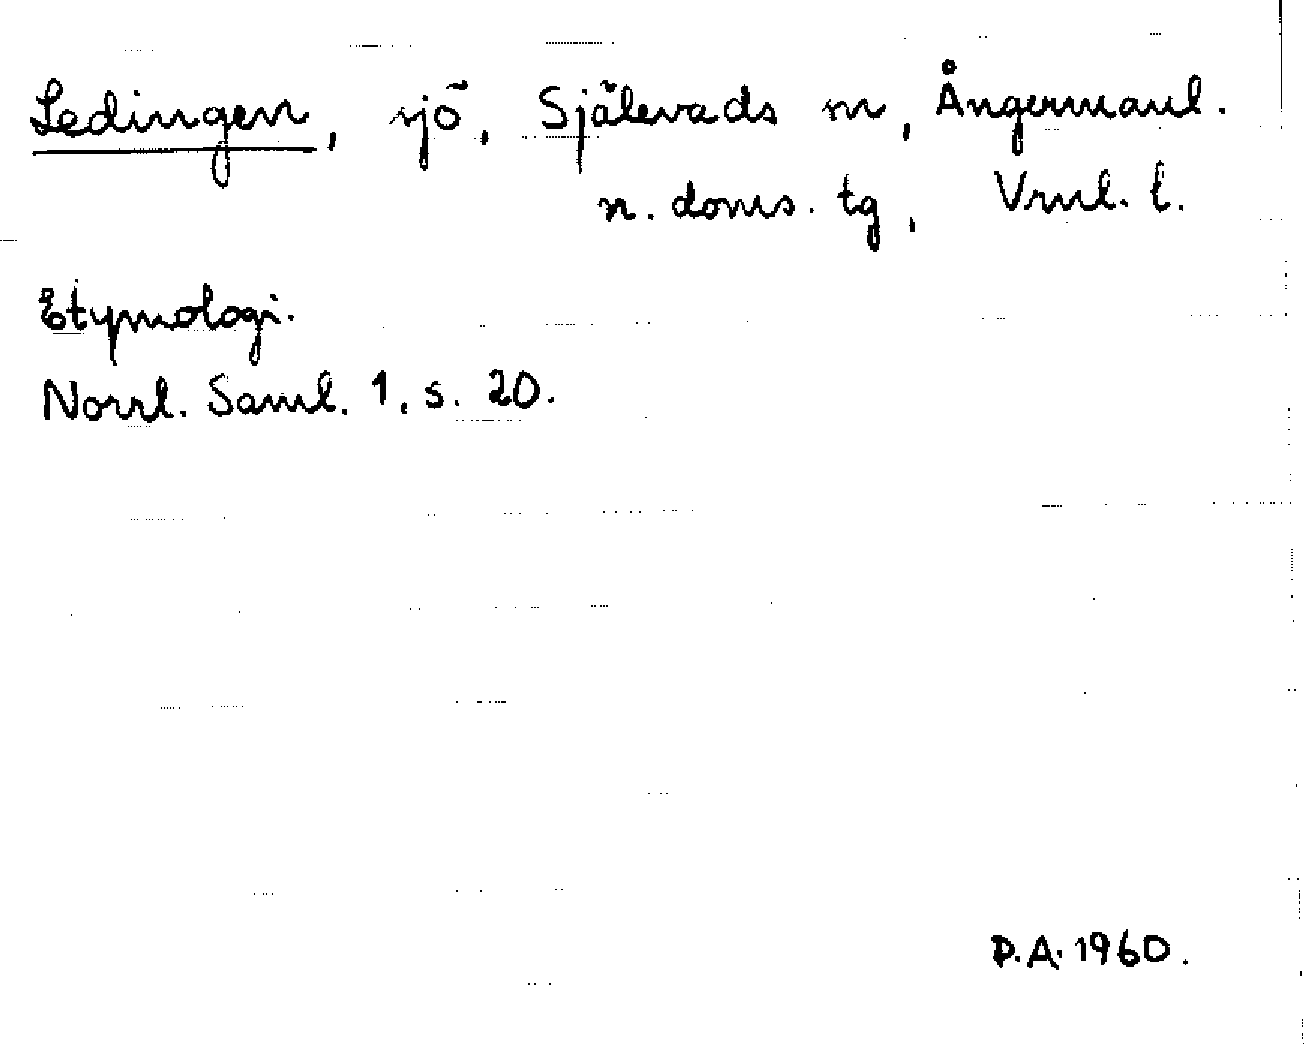 Ledingen, sjö, Själevads sn, Ångermanl.
n. doms. tg, Vrnl. l.
Etymologi.
Norrl. Saml. 1, s. 20.
D.A. 1960.